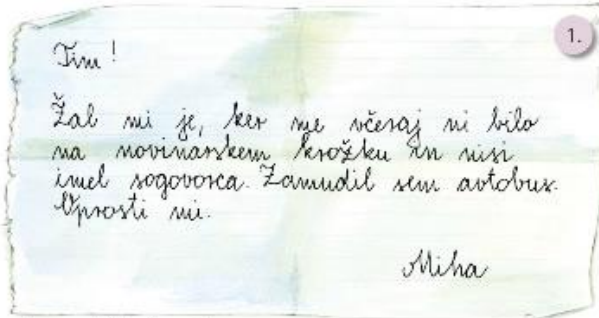 1.
Tim!
Žal mi je, ker me včeraj ni bilo
na novinarskem krožku in nisi
imel sogovorca. Zamudil sem avtobus.
Oprosti mi.
Miha